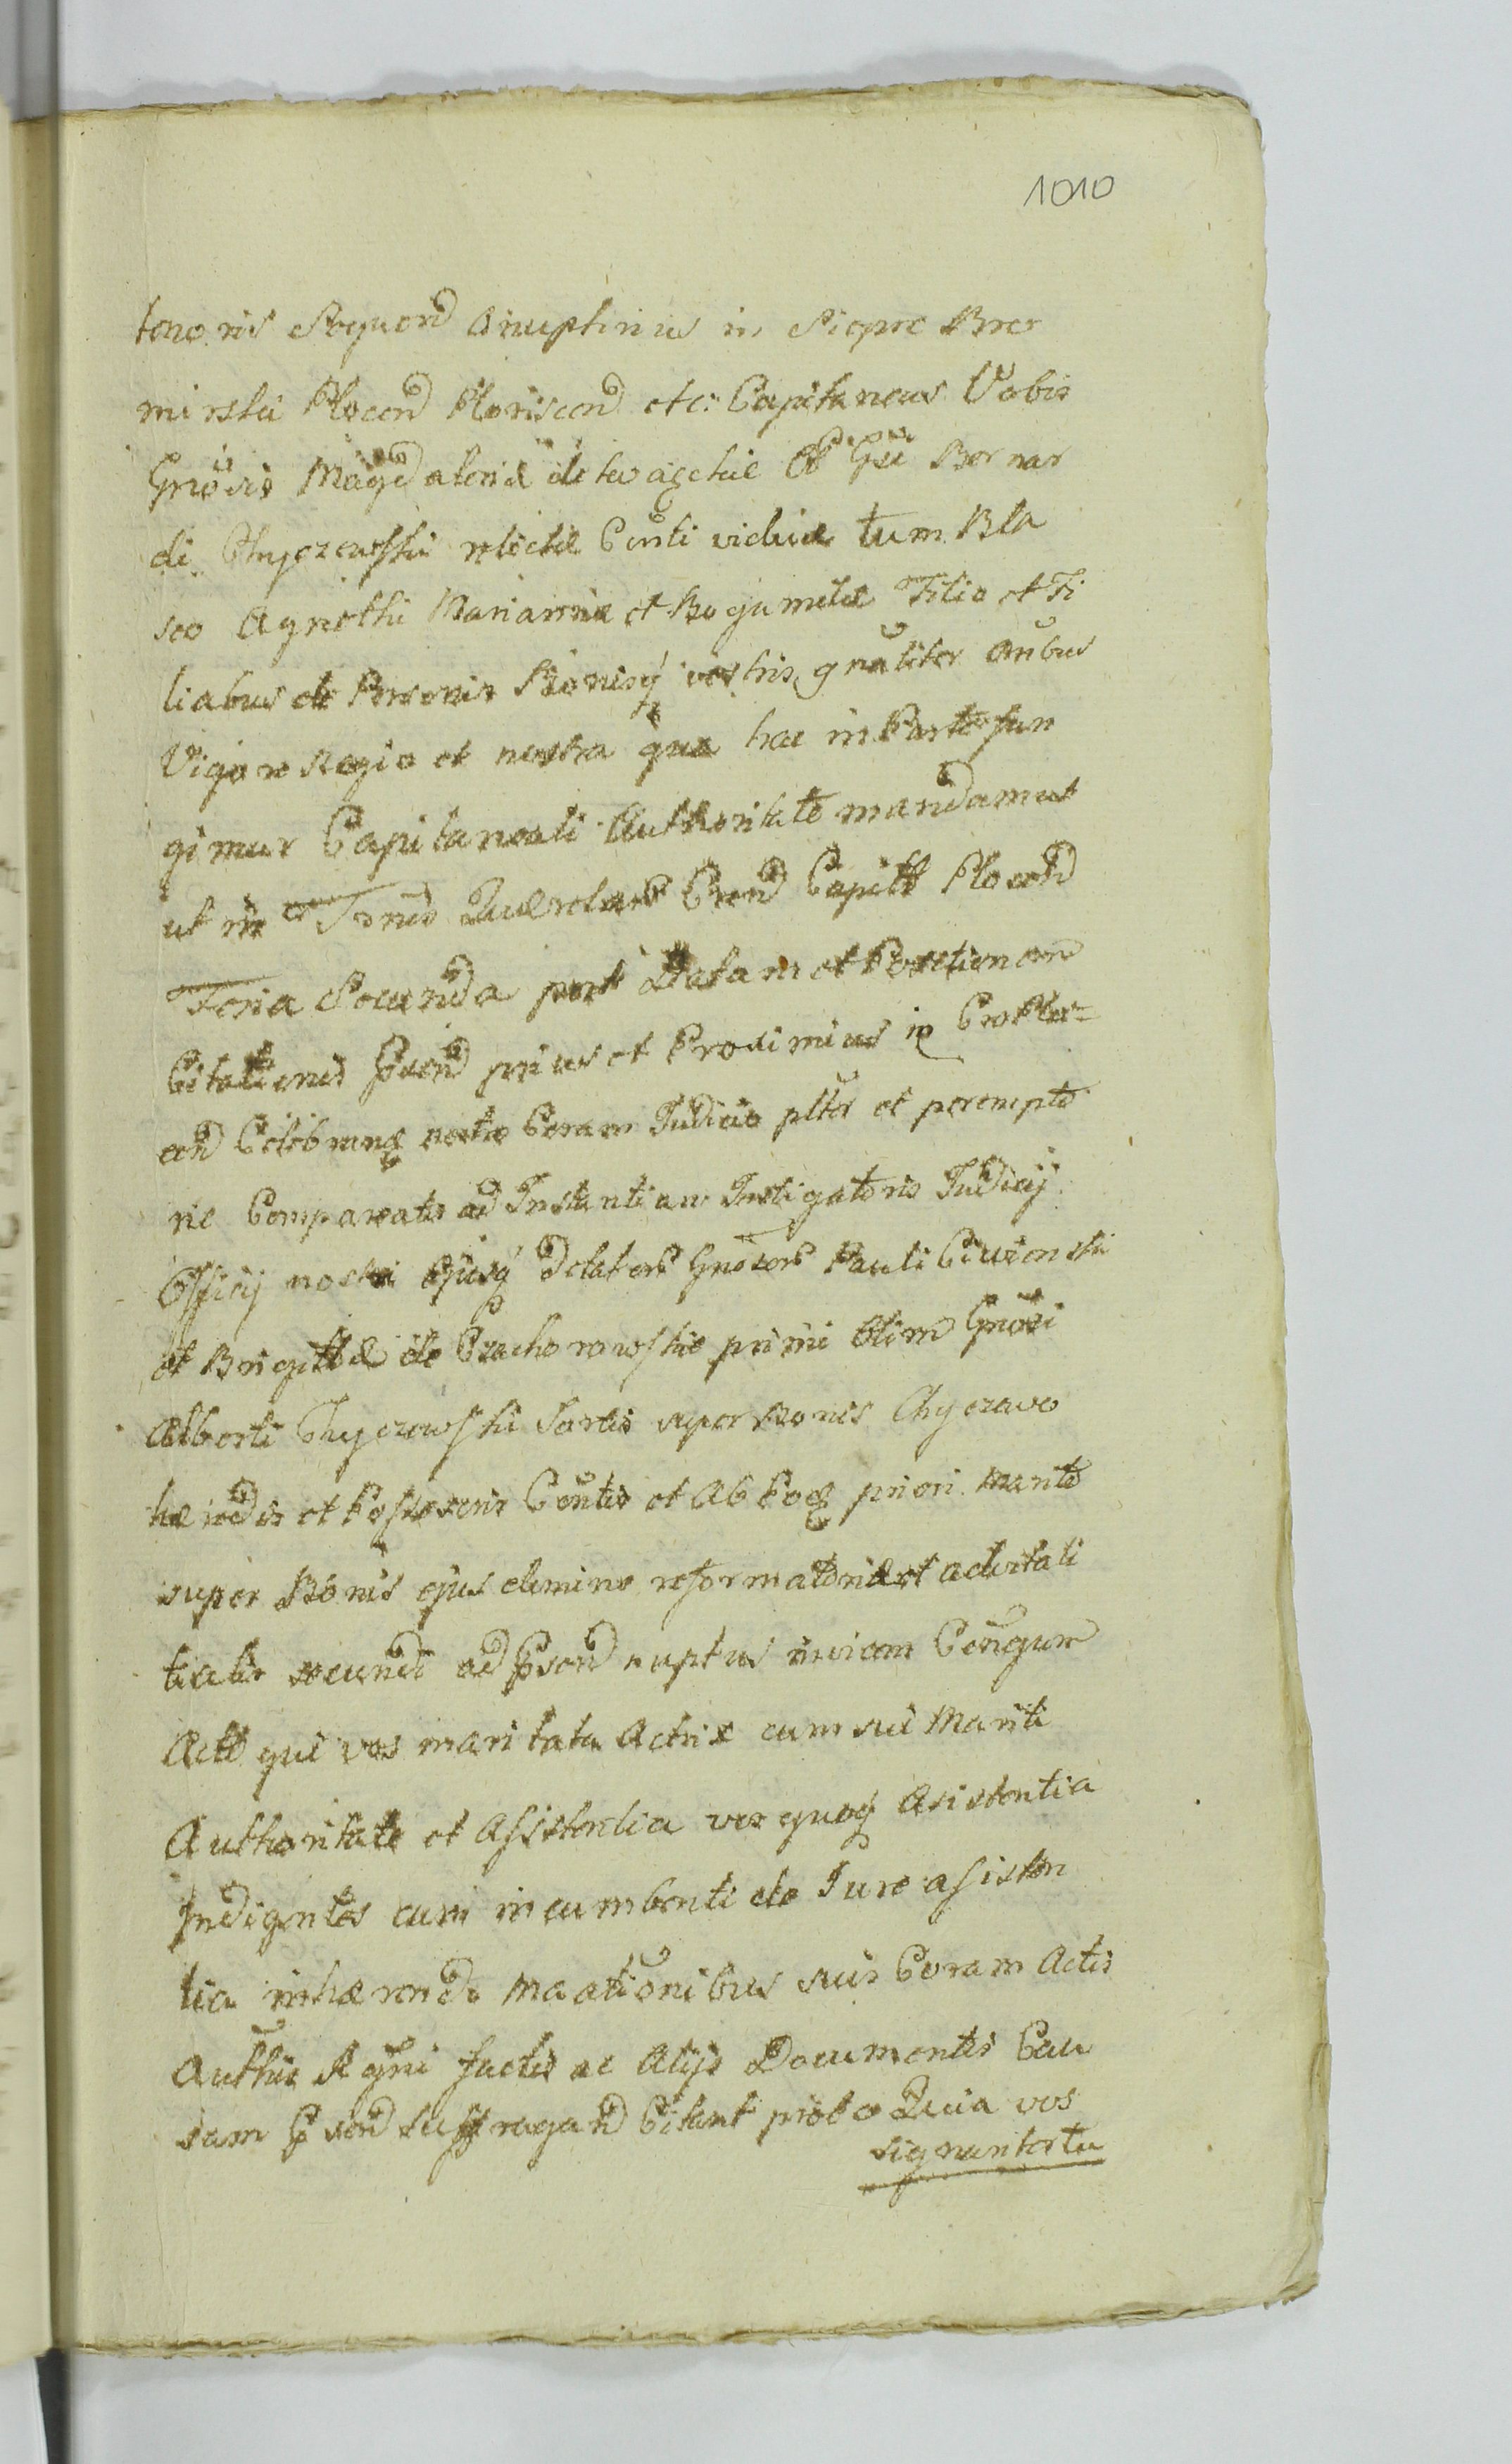 1010
tenoris Sequend
in Siepre Brer
mirski Plocen Plonscen etc: Capitaneus Vobis
Gnosis Magdalenæ de Gsi Bernar
di Chyczewski relictæ Consti viduæ tum Bla
seo Agnethi Mariannæ et Bogumilæ Filio et Fi
liabus de Personis Bonisq vestris gnaliter onibus
Vigore Regio et nostra qua hac in Parte fun
gimur Capitaneali Authoritate mandamus
ut in Trnis Querelars Crend Capitt Plocend
Feria Secunda post Datam et Positionem
Citationis Psend prius et Proximius in
end Celebrand Coram Judicio pltr et perempto
rie Compareatis ad Instantiam Instigatoris Judicij
Officij nostri Ejusq Delators Gnosors Pauli Ciwienski
et Brigittæ de Czachorowskie primi Olim Gnosi
Alberti Chyczewski Sortis super Bonis Chyczewo
hæredis et Possessoris Contis et Ab Eoq priori Marito
super Bonis ejus demine reformatoriæ et advitali
tialis secundi ad Psend nuptus invicem Conjgum
Actt qui vos maritata Actrix cum sui Mariti
Authoritate et Assistentia vos quoq Asistentia
Indigentes cum incumbenti de Jure assisten
tia inhærendo Maationibus suis Coram Actis
Authis Rgni factis ac Alijs Documentis Cau
sam Psend suffragand Citant pröto Quia vos
signanter tu